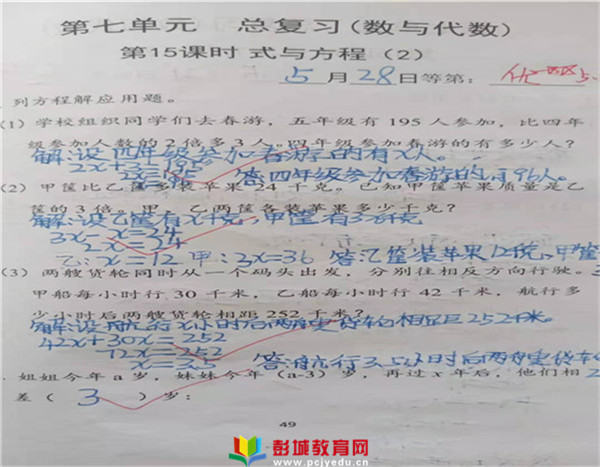 第七单元 总复习(数与代数)
第15课时 式与方程(2)
5月28日等第:优
列方程解应用题。
(1)学校组织同学们去春游,五年级有195人参加,比四年
级参加人数的2倍多3人。四年级参加春游的有多少人?
解:设四年级参加春游的有x人。
2x+3=195
答四年级参加春游的有96人。
(2)甲筐比乙筐多装苹果24千克。已知甲筐苹果质量是乙
筐的3倍。甲、乙两筐各装苹果多少千克?
解:设乙筐有x千克,甲筐有3x千克
3x-x=24
2x=24
乙:x=12 甲:3x=36 答:乙筐装苹果12千克,甲筐
(3)两艘货轮同时从一个码头出发,分别往相反方向行驶。
甲船每小时行30千米,乙船每小时行42千米,航行多
少小时后两艘货轮相距252千米?
解:设航行x小时后两艘货轮相距252千米。
42x+30x=252
72x=252
x=3.5
答:航行3.5小时后两艘货轮
姐姐今年a岁,妹妹今年(a-3)岁,再过x年后,他们相
差(3)岁;
49
彭城教育网
www.pcjyedu.cn